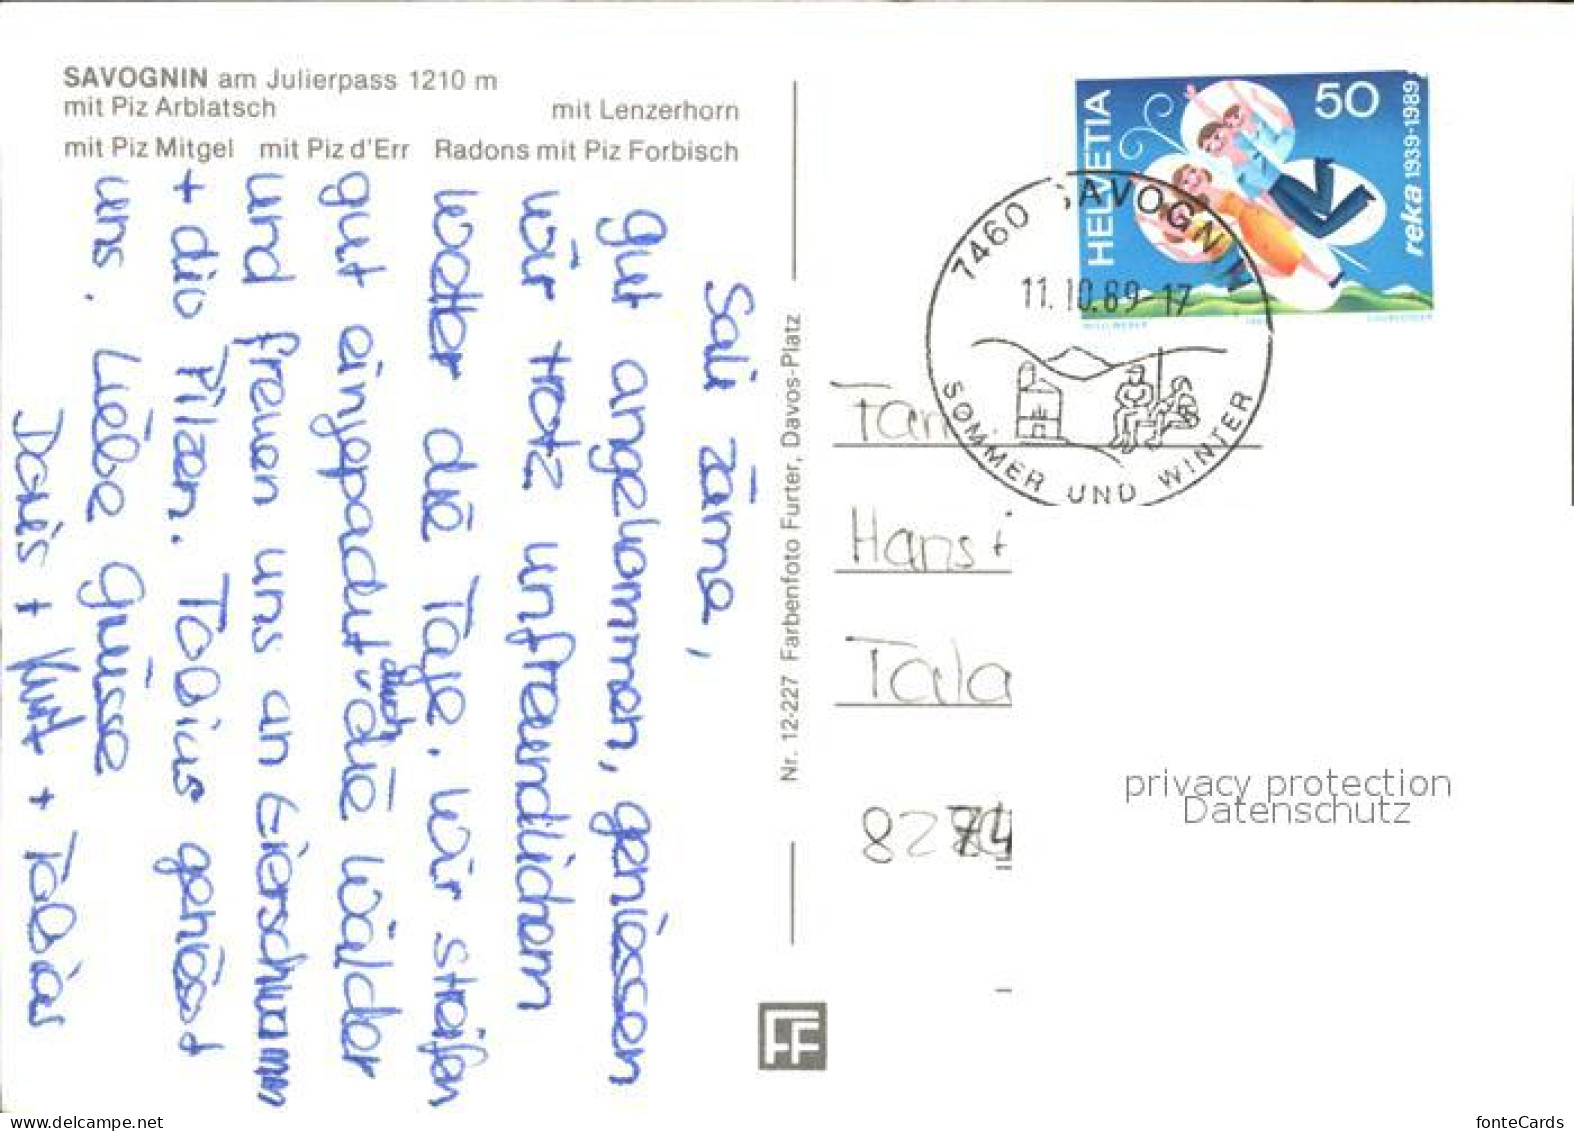 SAVOGNIN am Julierpass 1210 m
mit Piz Arblatsch mit Lenzerhorn
mit Piz Mitgel mit Piz d'Err Radons mit Piz Forbisch
Sali zäme,
gut angekommen, geniessen
wir trotz unfreundlichem
Wetter die Tage. Wir streifen
gut eingepackt durch die Wälder
und freuen uns an Eierschwamm
+ die Pilzen. Tobias geniesst
uns. Liebe Grüsse
Doris + Kurt + Tobias
Nr. 12-227 Farbenfoto Furter, Davos-Platz
FF
HELVETIA
50
reka 1939-1989
7460 SAVOGNIN
11.10.89-17
SOMMER UND WINTER
Fam.
Hans +
Tala
privacy protection
Datenschutz
www.delcampe.net
fonteCards